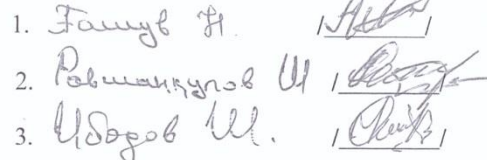 1. Гашув Н. / /
2. Равшанкулов Ш / /
3. Ибодов Ш. / /